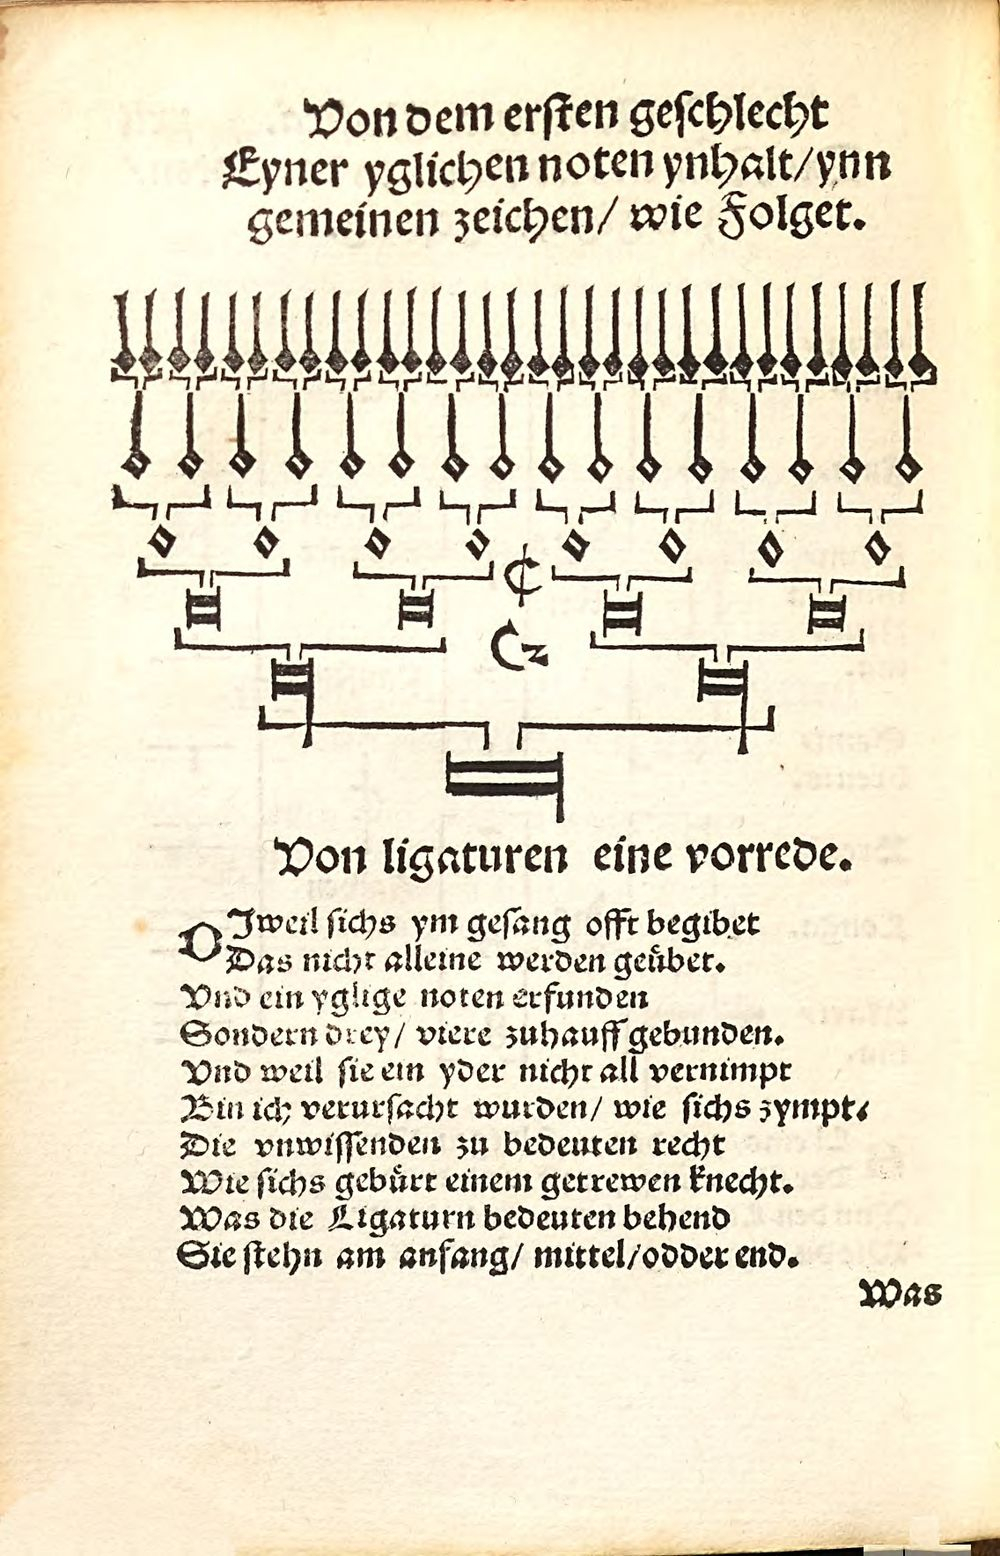 Von dem ersten geschlecht
Eyner yglichen noten ynhalt/ynn
gemeinen zeichen/ wie Folget.
Von ligaturen eine vorrede.
DJweil sichs ym gesang offt begibet
Das nicht alleine werden geübet.
Vnd ein yglige noten erfunden
Sondern drey/ viere zuhauff gebunden.
Vnd weil sie ein yder nicht all vernimpt
Bin ich verursacht wurden/ wie sichs zympt.
Die vnwissenden zu bedeuten recht
Wie sichs gebürt einem getrewen knecht.
Was die Ligaturn bedeuten behend
Sie stehn am anfang/ mittel/odder end.
Was